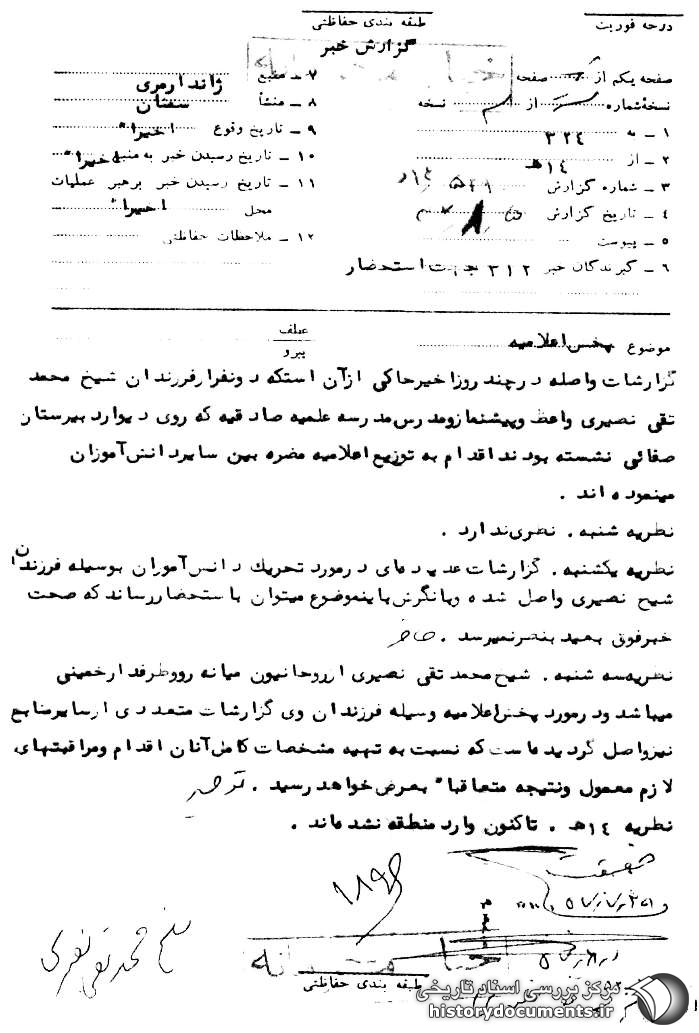 درجه فوریت
طبقه بندی حفاظتی
گزارش خبر
صفحه یکم از صفحه
نسخهٔ شماره از نسخه
۱ ـ به ۳۲٤
۲ ـ از ۱٤هـ
۳ ـ شماره گزارش
٤ ـ تاریخ گزارش
۵ ـ پیوست
۶ ـ گیرندگان خبر ۳۱۲ جهت استحضار
۷ ـ منبع ژاندارمری
۸ ـ منشأ سمنان
۹ ـ تاریخ وقوع اخیرا"
۱۰ ـ تاریخ رسیدن خبر به منبع اخیرا"
۱۱ ـ تاریخ رسیدن خبر برهبر عملیات
محل اخیرا"
۱۲ ـ ملاحظات حفاظتی
موضوع پخش اعلامیه
عطف
پیرو
گزارشات واصله در چند روز اخیر حاکی از آن استکه دونفر از فرزندان شیخ محمد
تقی نصیری واعظ و پیشنماز و مدرس مدرسه علمیه صادقیه که روی دیوار دبیرستان
صفائی نشسته بودند اقدام به توزیع اعلامیه مضره بین سایر دانش آموزان
مینموده اند .
نظریه شنبه . نظری ندارد .
نظریه یکشنبه . گزارشات عدیده ای در مورد تحریك دانش آموزان بوسیله فرزندان
شیخ نصیری واصل شده و بانگرش باینموضوع میتوان باستحضار رساند که صحت
خبر فوق بعید بنظر نمیرسد .
نظریه سه شنبه . شیخ محمد تقی نصیری از روحانیون میانه رو و طرفدار خمینی
میباشد و در مورد پخش اعلامیه وسیله فرزندان وی گزارشات متعددی از سایر منابع
نیز واصل گردیده است که نسبت به تهیه مشخصات کامل آنان اقدام و مراقبتهای
لازم معمول و نتیجه متعاقبا" بعرض خواهد رسید .
نظریه ۱٤هـ . تاکنون وارد منطقه نشده اند .
شیخ محمد تقی نصیری
طبقه بندی حفاظتی
مرکز بررسی اسناد تاریخی
historydocuments.ir